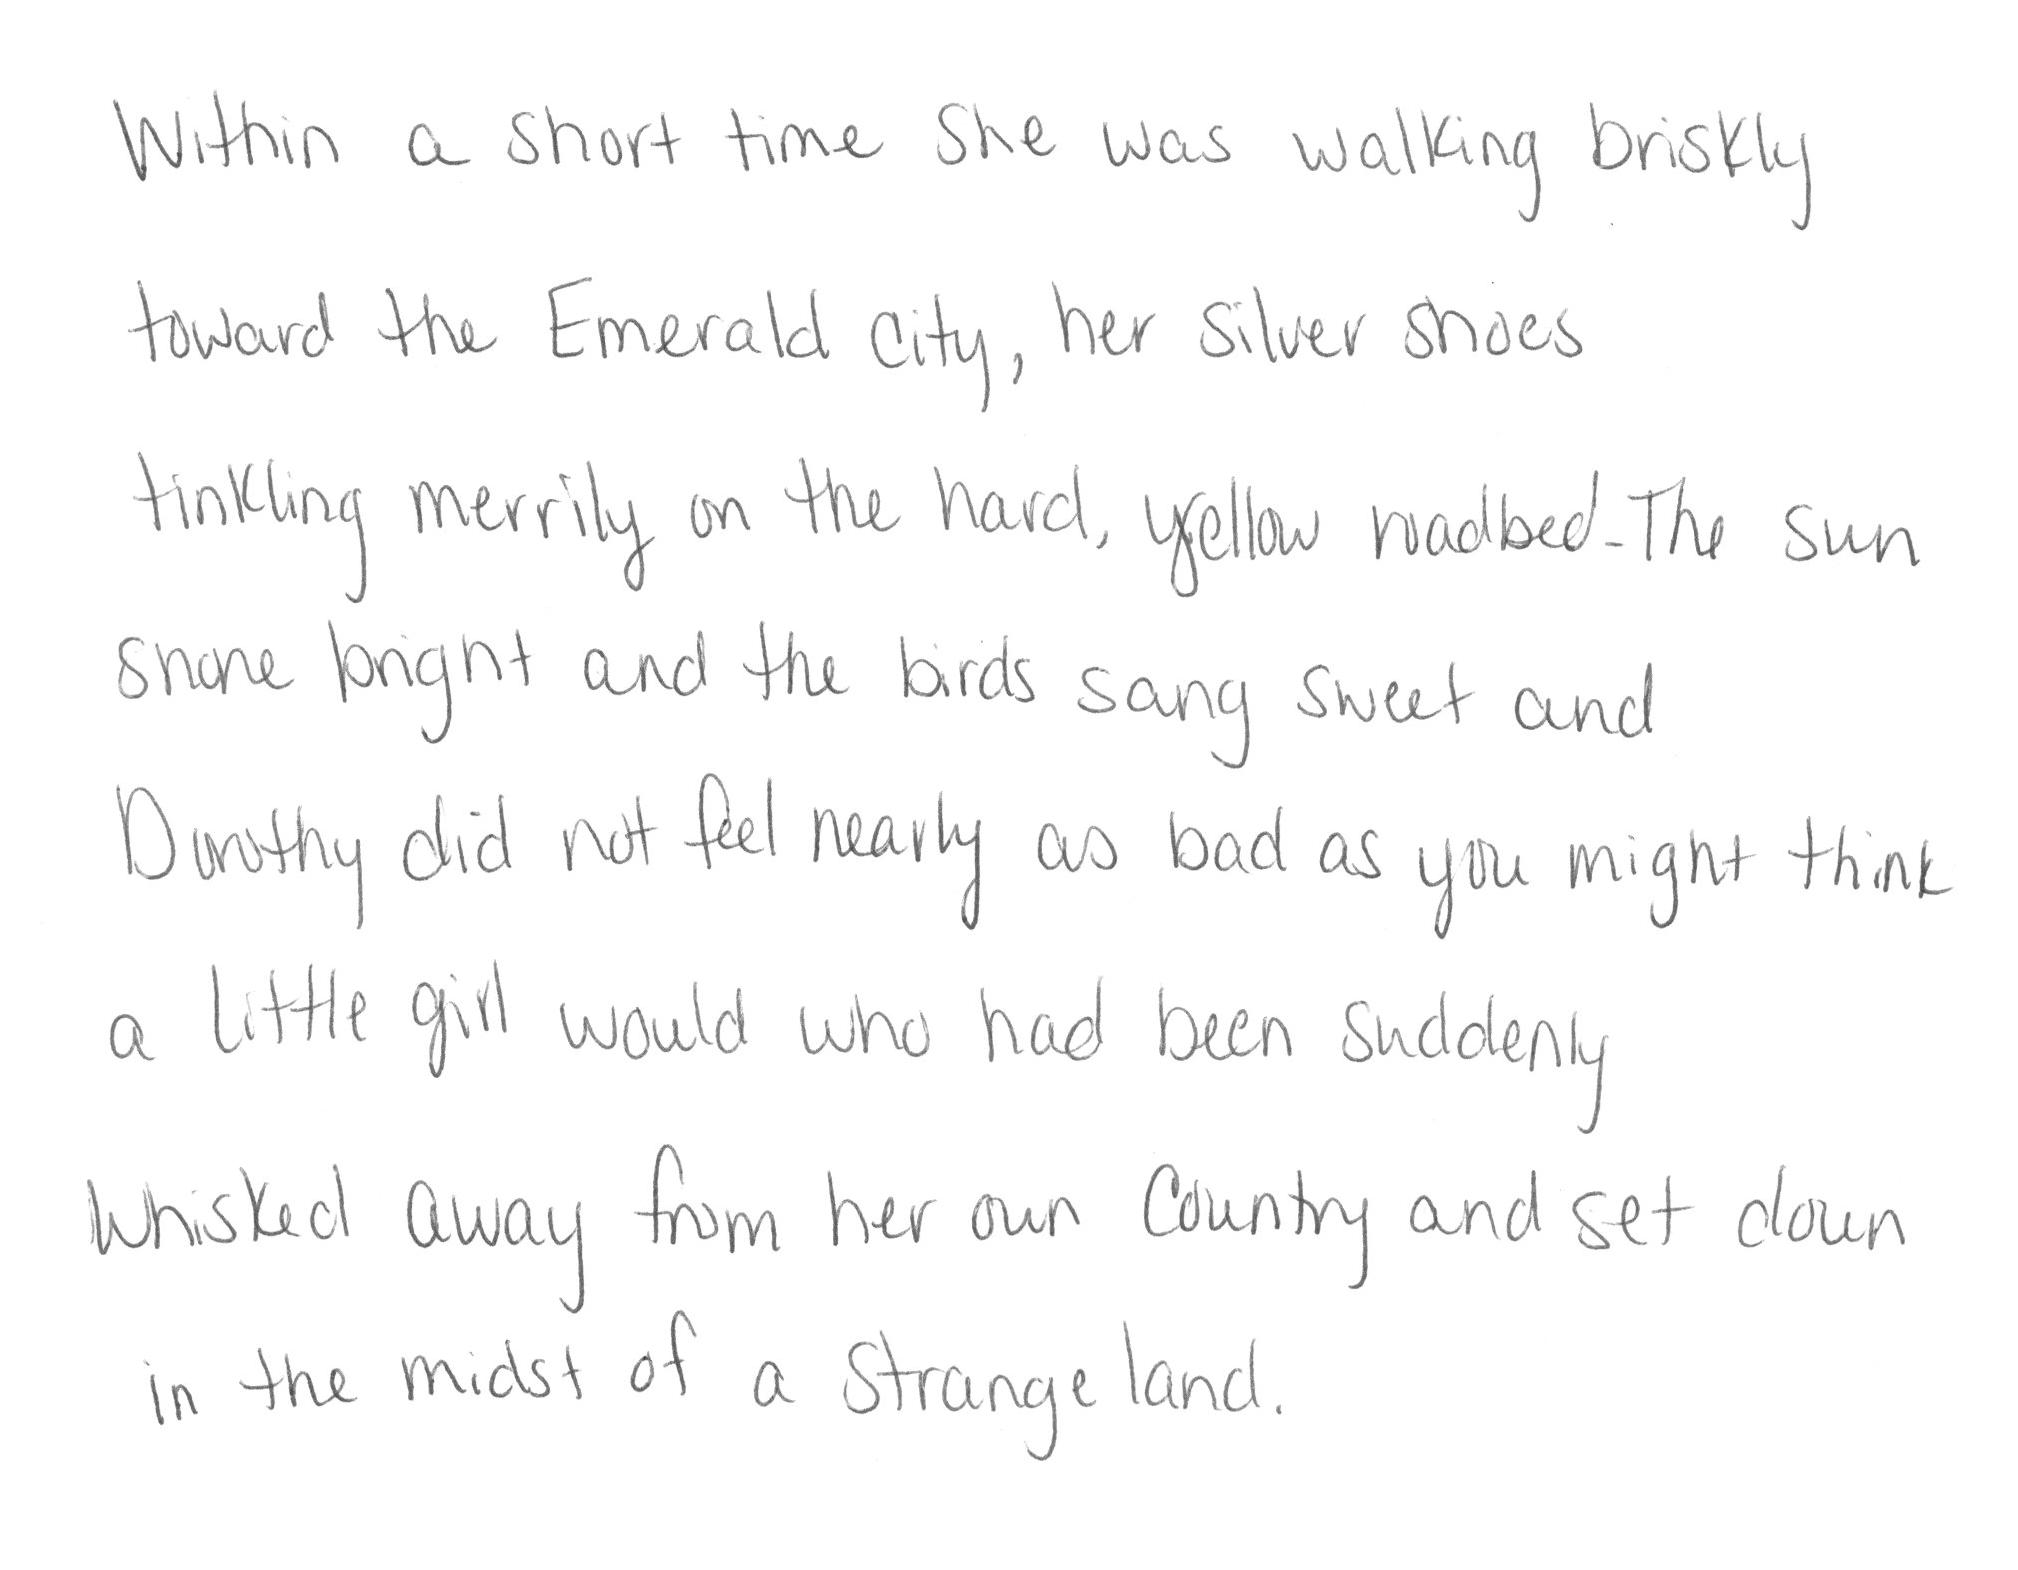 Within a short time she was walking briskly
toward the Emerald city, her silver shoes
tinkling merrily on the hard, yellow roadbed. The sun
shone bright and the birds sang sweet and
Dorothy did not feel nearly as bad as you might think
a little girl would who had been suddenly
whisked away from her own country and set down
in the midst of a strange land.